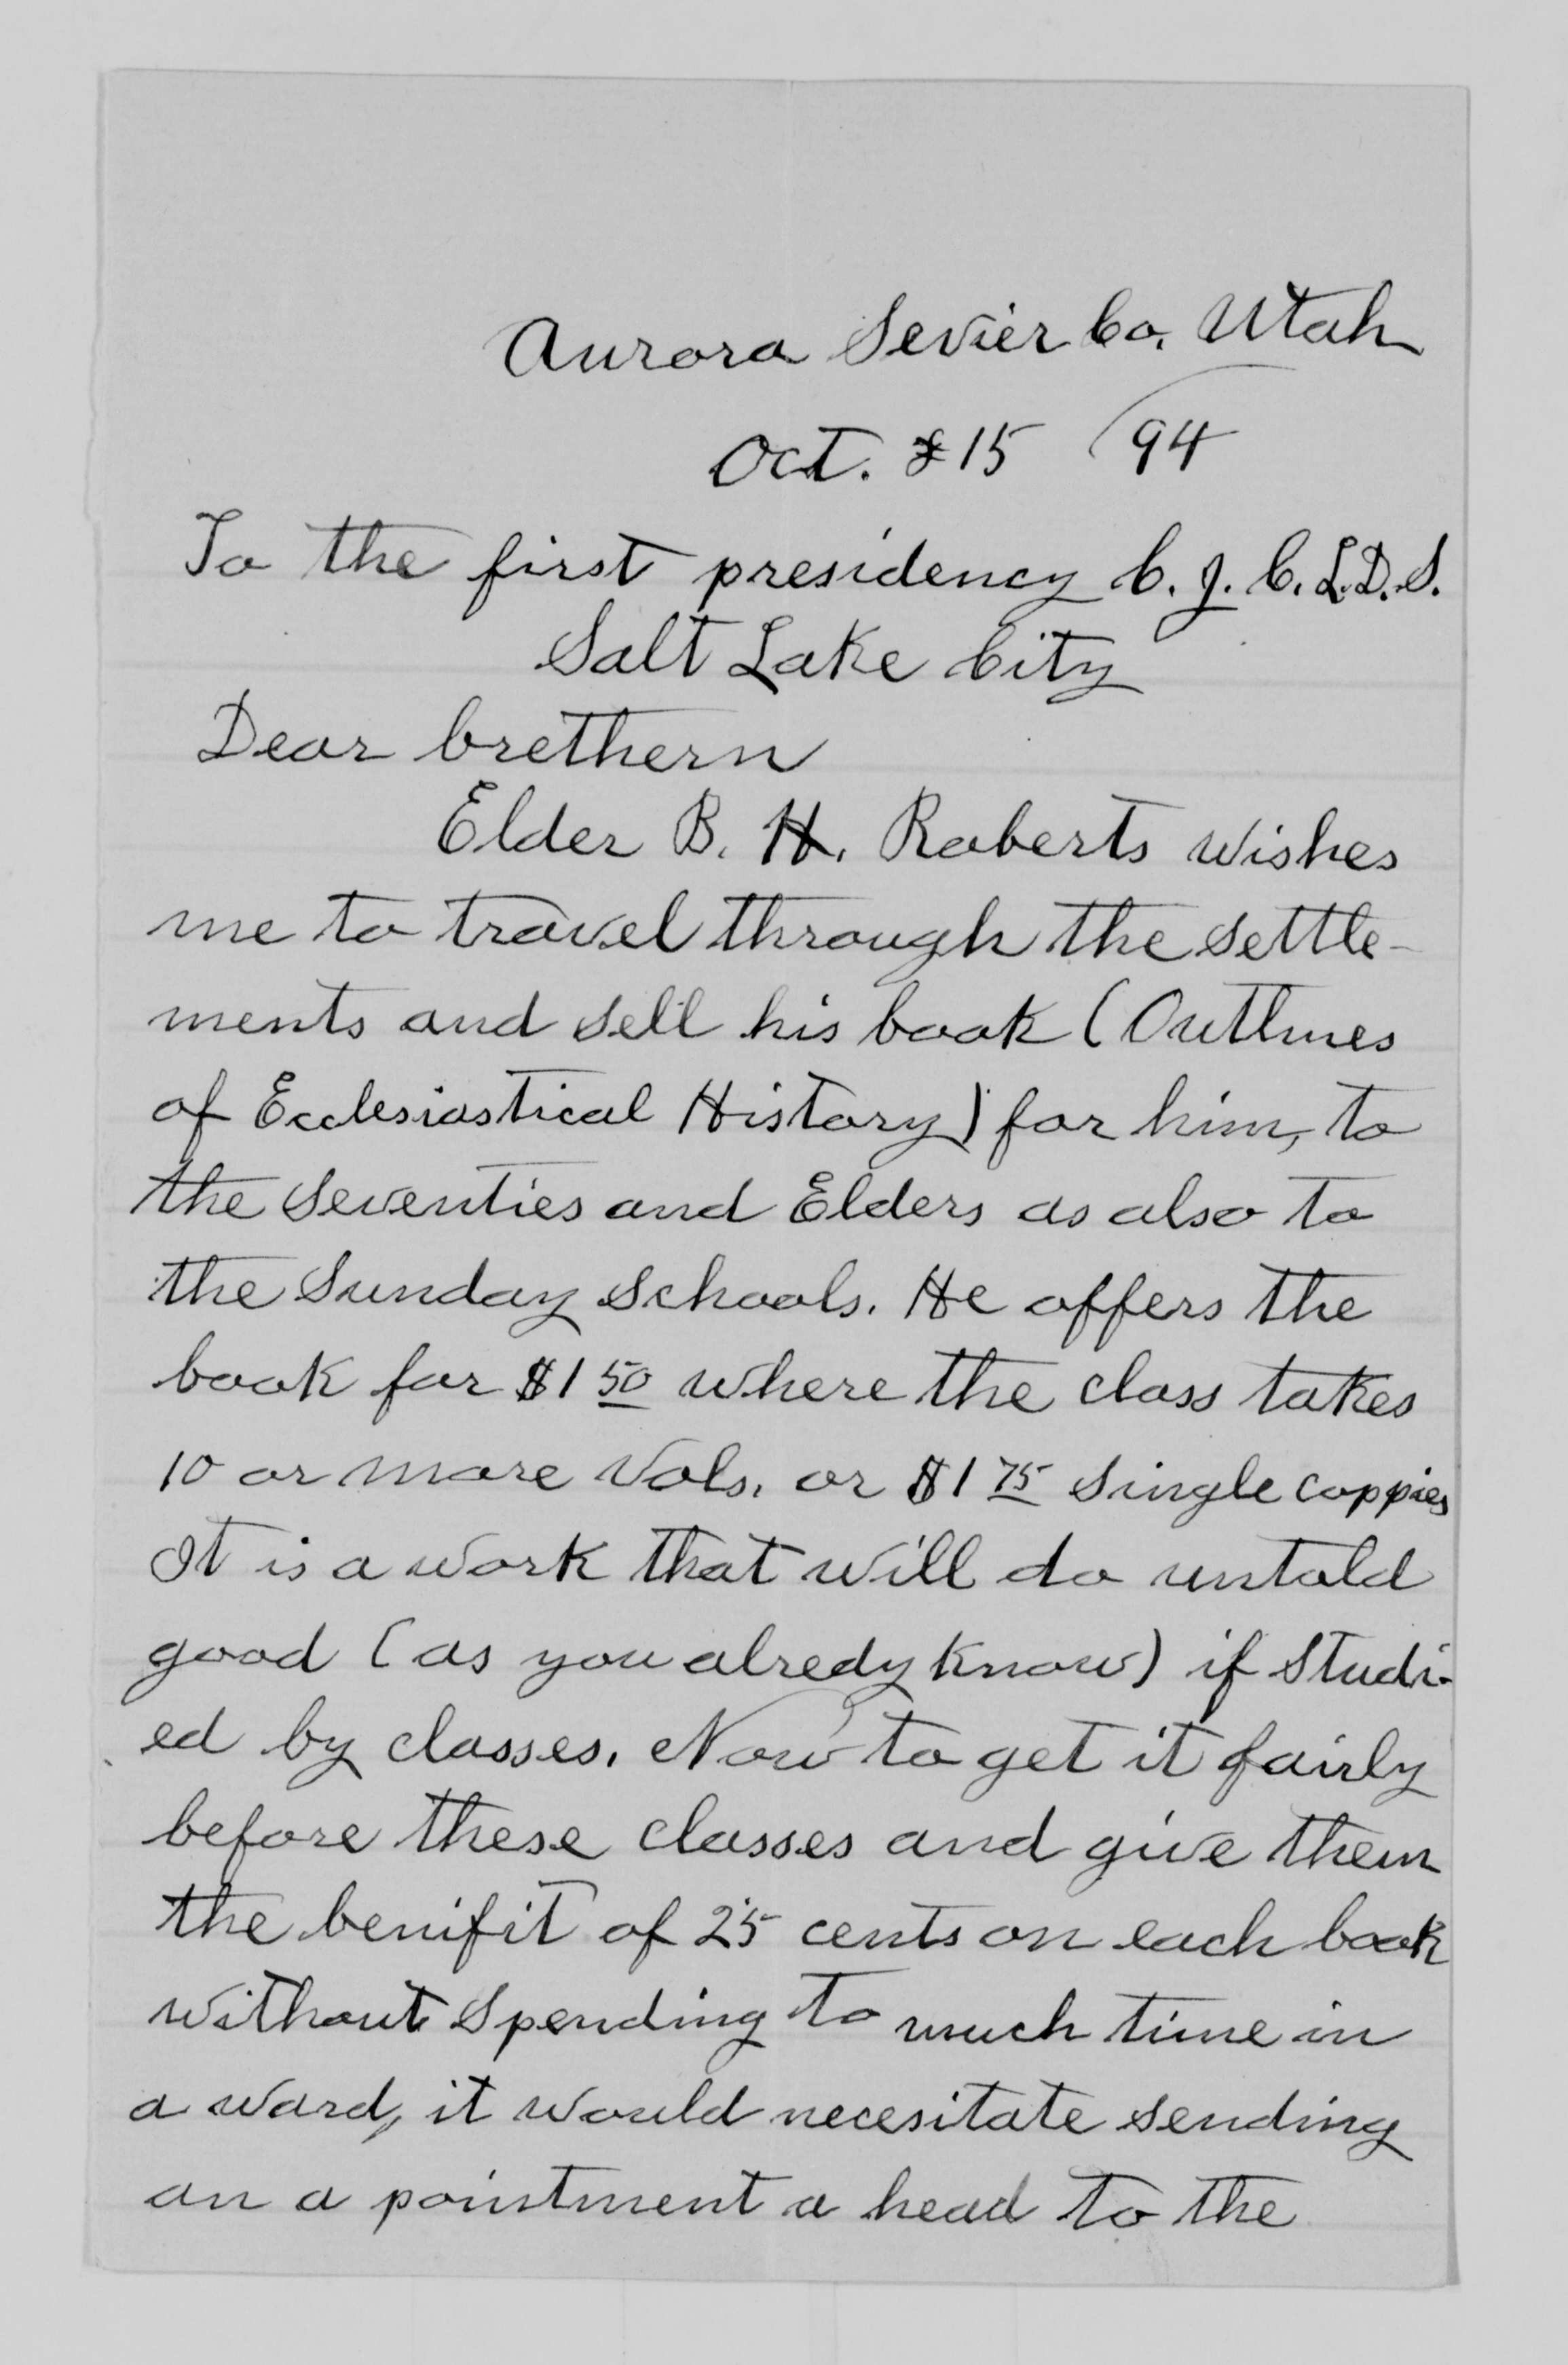 Aurora Sevier Co. Utah
Oct. 15 /94
To the first presidency C. J. C. L.D.S.
Salt Lake City
Dear brethern
Elder B. H. Roberts wishes
me to travel through the settle-
ments and sell his book (Outlines
of Ecclesiastical History) for him, to
the Seventies and Elders as also to
the Sunday Schools. He offers the
book for $1 50 where the class takes
10 or more Vols. or $1 75 single coppies
It is a work that will do untold
good (as you alredy know) if studi-
ed by classes. Now to get it fairly
before these classes and give them
the benifit of 25 cents on each book
without spending to much time in
a ward, it would necesitate sending
an a pointment a head to the